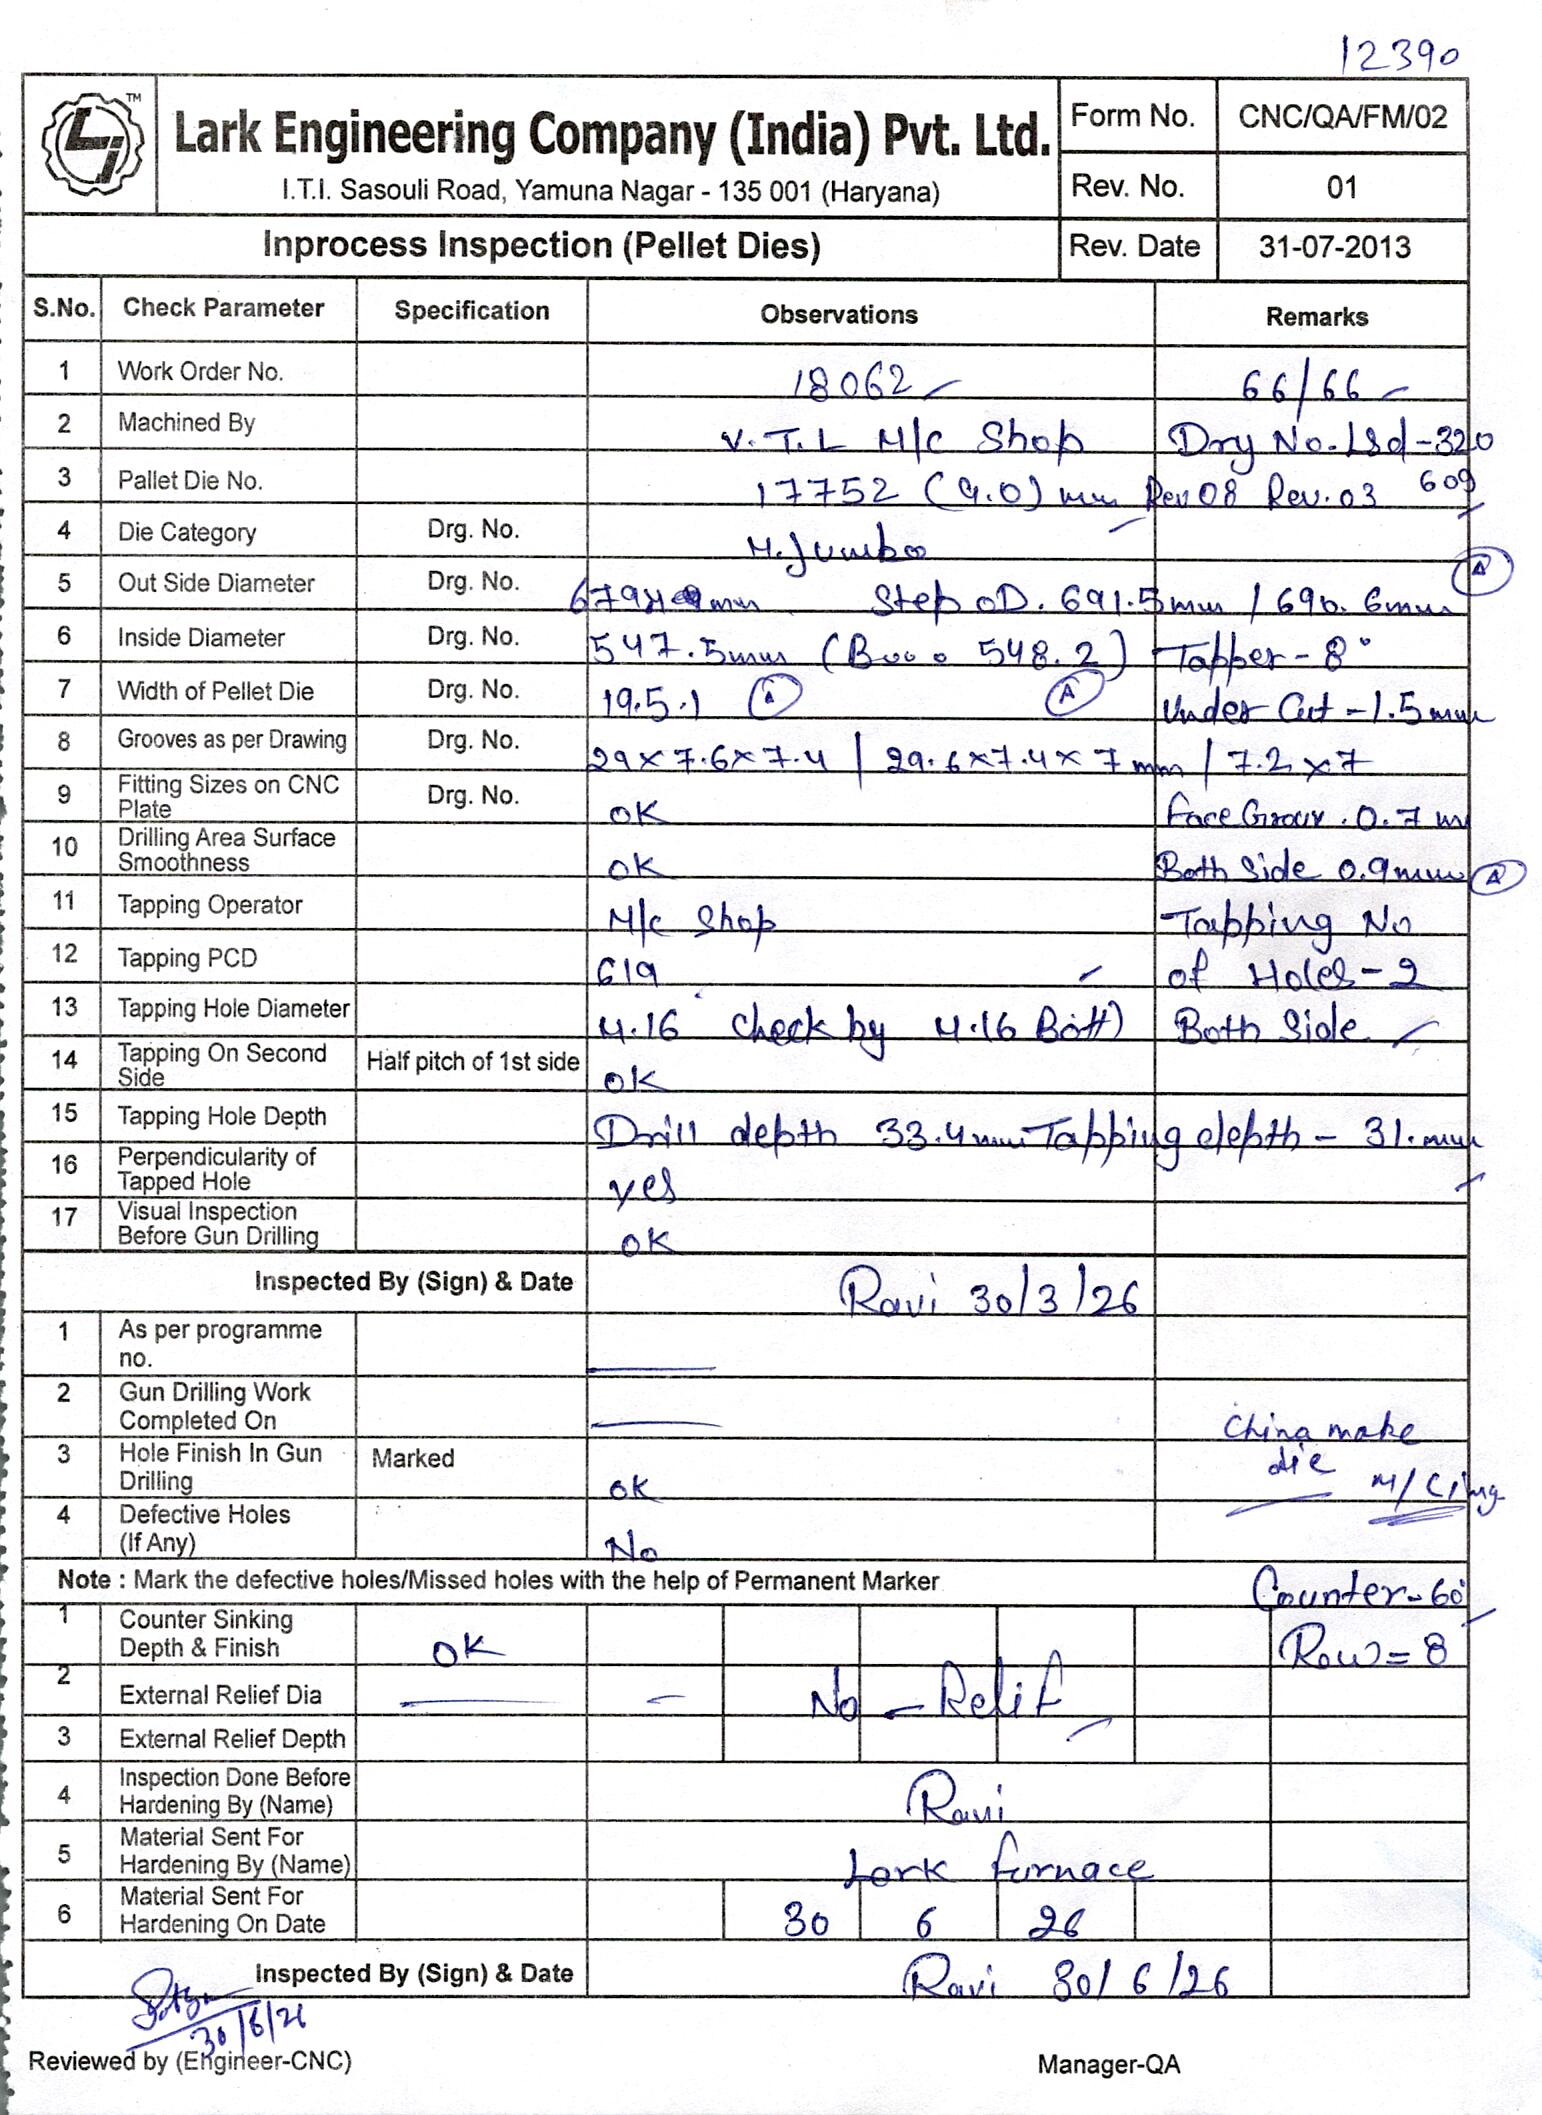 12390
TM
Lark Engineering Company (India) Pvt. Ltd.
I.T.I. Sasouli Road, Yamuna Nagar - 135 001 (Haryana)
Form No. CNC/QA/FM/02
Rev. No. 01
Inprocess Inspection (Pellet Dies) Rev. Date 31-07-2013
S.No. Check Parameter Specification Observations Remarks
1 Work Order No. 18062 66/66
2 Machined By V.T.L M/c Shop Drg No. Lsd-320
3 Pallet Die No. 17752 (4.0) mm Rev 08 Rev. 03 609
4 Die Category Drg. No. M. Jumbo
A
5 Out Side Diameter Drg. No. 679 mm Step OD. 691.5mm / 690.6mm
6 Inside Diameter Drg. No. 547.5mm (548.2) Tapper - 8°
7 Width of Pellet Die Drg. No. 19.5.1 A A Under Cut - 1.5mm
8 Grooves as per Drawing Drg. No. 29 x 7.6 x 7.4 / 29.6 x 7.4 x 7 mm / 7.2 x 7
9 Fitting Sizes on CNC Plate Drg. No. OK Face Groov. 0.7 m
10 Drilling Area Surface Smoothness OK Both Side 0.9mm A
11 Tapping Operator M/c Shop Tapping No
12 Tapping PCD 619 of Holes - 2
13 Tapping Hole Diameter M.16 Check by M.16 Bolt) Both Side
14 Tapping On Second Side Half pitch of 1st side OK
15 Tapping Hole Depth Drill depth 33.4mm Tapping depth - 31.mm
16 Perpendicularity of Tapped Hole yes
17 Visual Inspection Before Gun Drilling OK
Inspected By (Sign) & Date Ravi 30/3/26
1 As per programme no.
2 Gun Drilling Work Completed On China make
3 Hole Finish In Gun Drilling Marked OK die M/Cing
4 Defective Holes (If Any) No
Note : Mark the defective holes/Missed holes with the help of Permanent Marker Counter - 60°
1 Counter Sinking Depth & Finish OK Row = 8
2 External Relief Dia No - Relif
3 External Relief Depth
4 Inspection Done Before Hardening By (Name) Ravi
5 Material Sent For Hardening By (Name) Lark furnace
6 Material Sent For Hardening On Date 30 6 26
Inspected By (Sign) & Date Ravi 30/6/26
30/6/26
Reviewed by (Engineer-CNC) Manager-QA